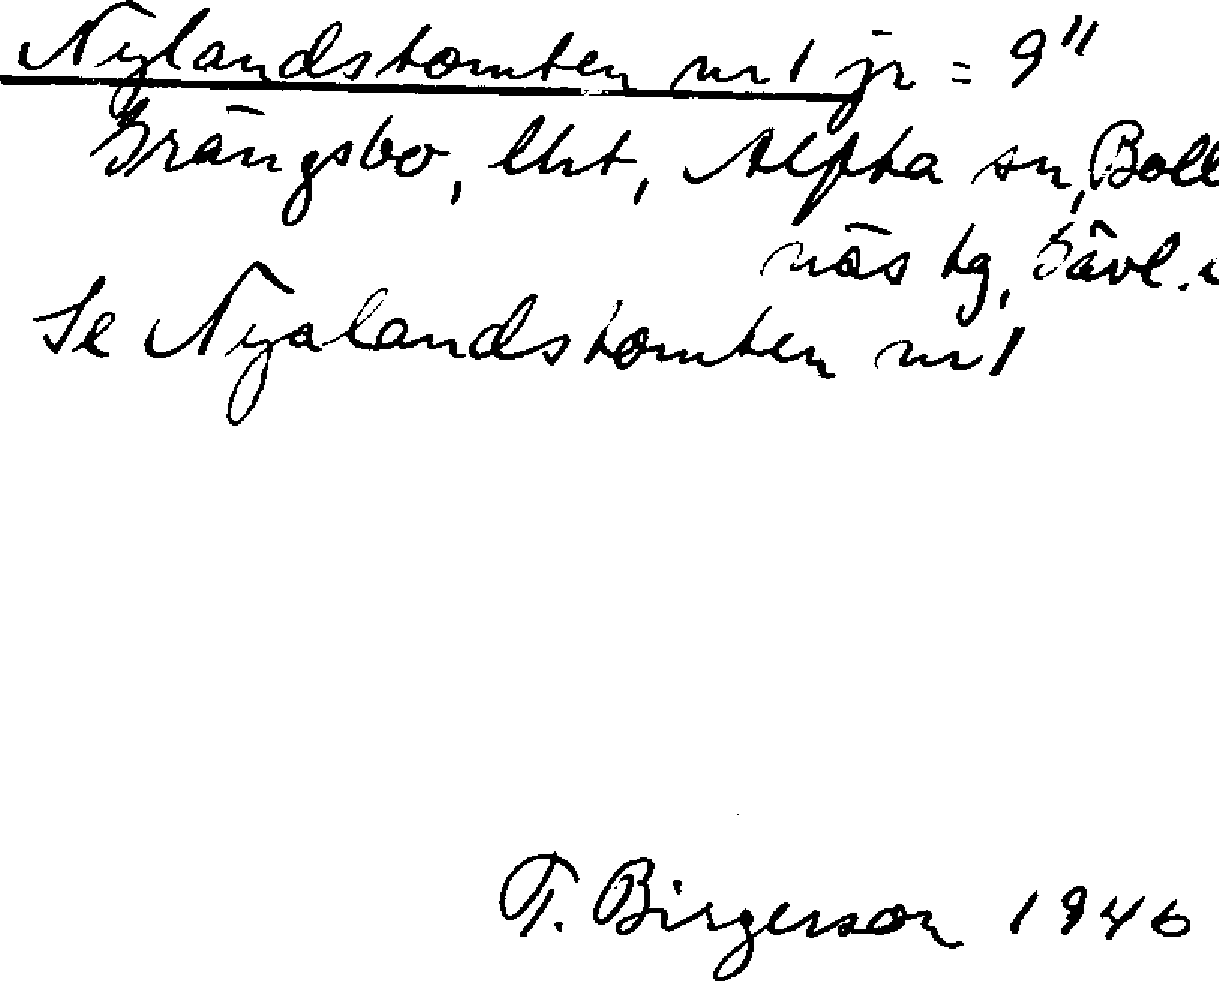 Nylandstomten nr 1 jr = 9"
Grängsbo, Uht, Alfta sn, Boll
näs tg, Gävl.
Se Nyalandstomten nr 1
T. Birgerson 1946